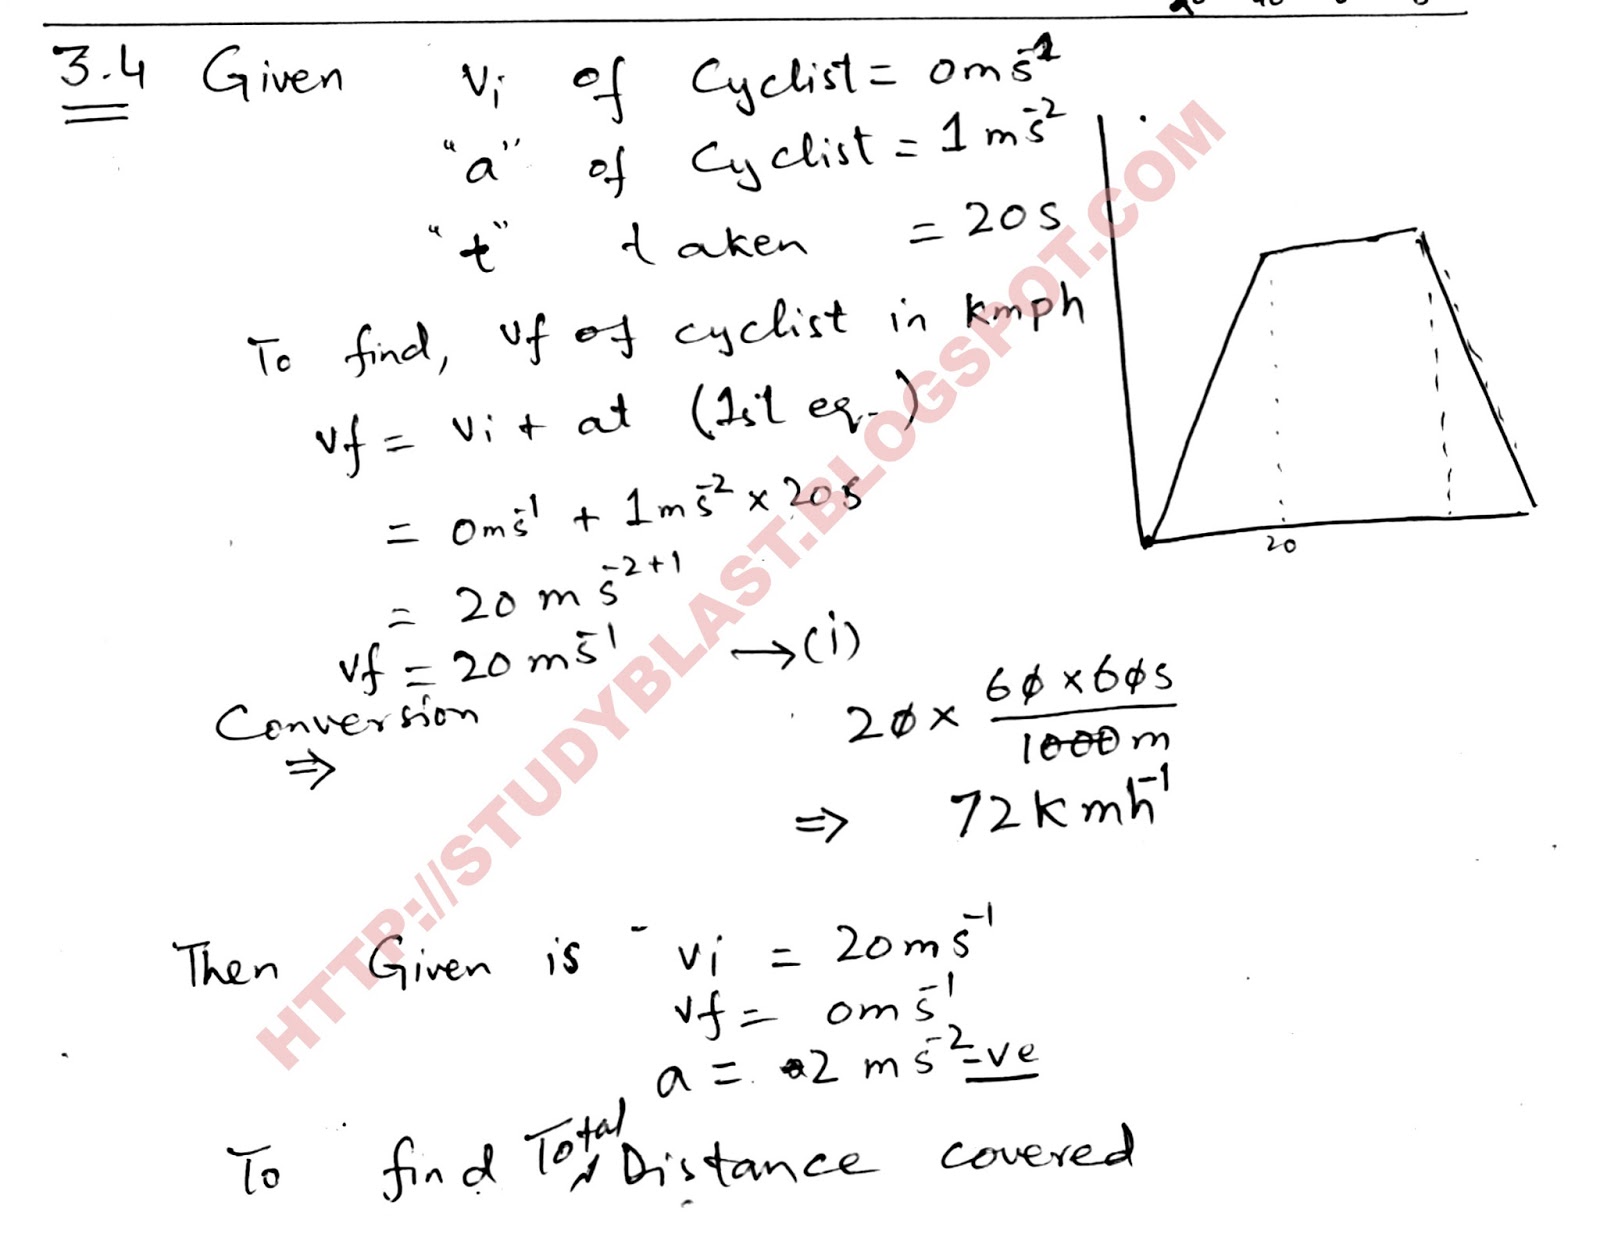 3.4 Given vi of Cyclist = 0ms⁻¹
"a" of Cyclist = 1ms⁻²
"t" taken = 20s
To find, vf of cyclist in kmph
vf = vi + at (1st eq.)
= 0ms⁻¹ + 1ms⁻² × 20s
= 20 m s⁻²⁺¹
vf = 20 ms⁻¹ → (i)
Conversion
⇒
20 × 60 × 60s / 1000 m
⇒ 72 kmh⁻¹
20
Then Given is - vi = 20ms⁻¹
vf = 0ms⁻¹
a = 2 ms⁻² -ve
To find Total Distance covered
HTTP://STUDYBLAST.BLOGSPOT.COM